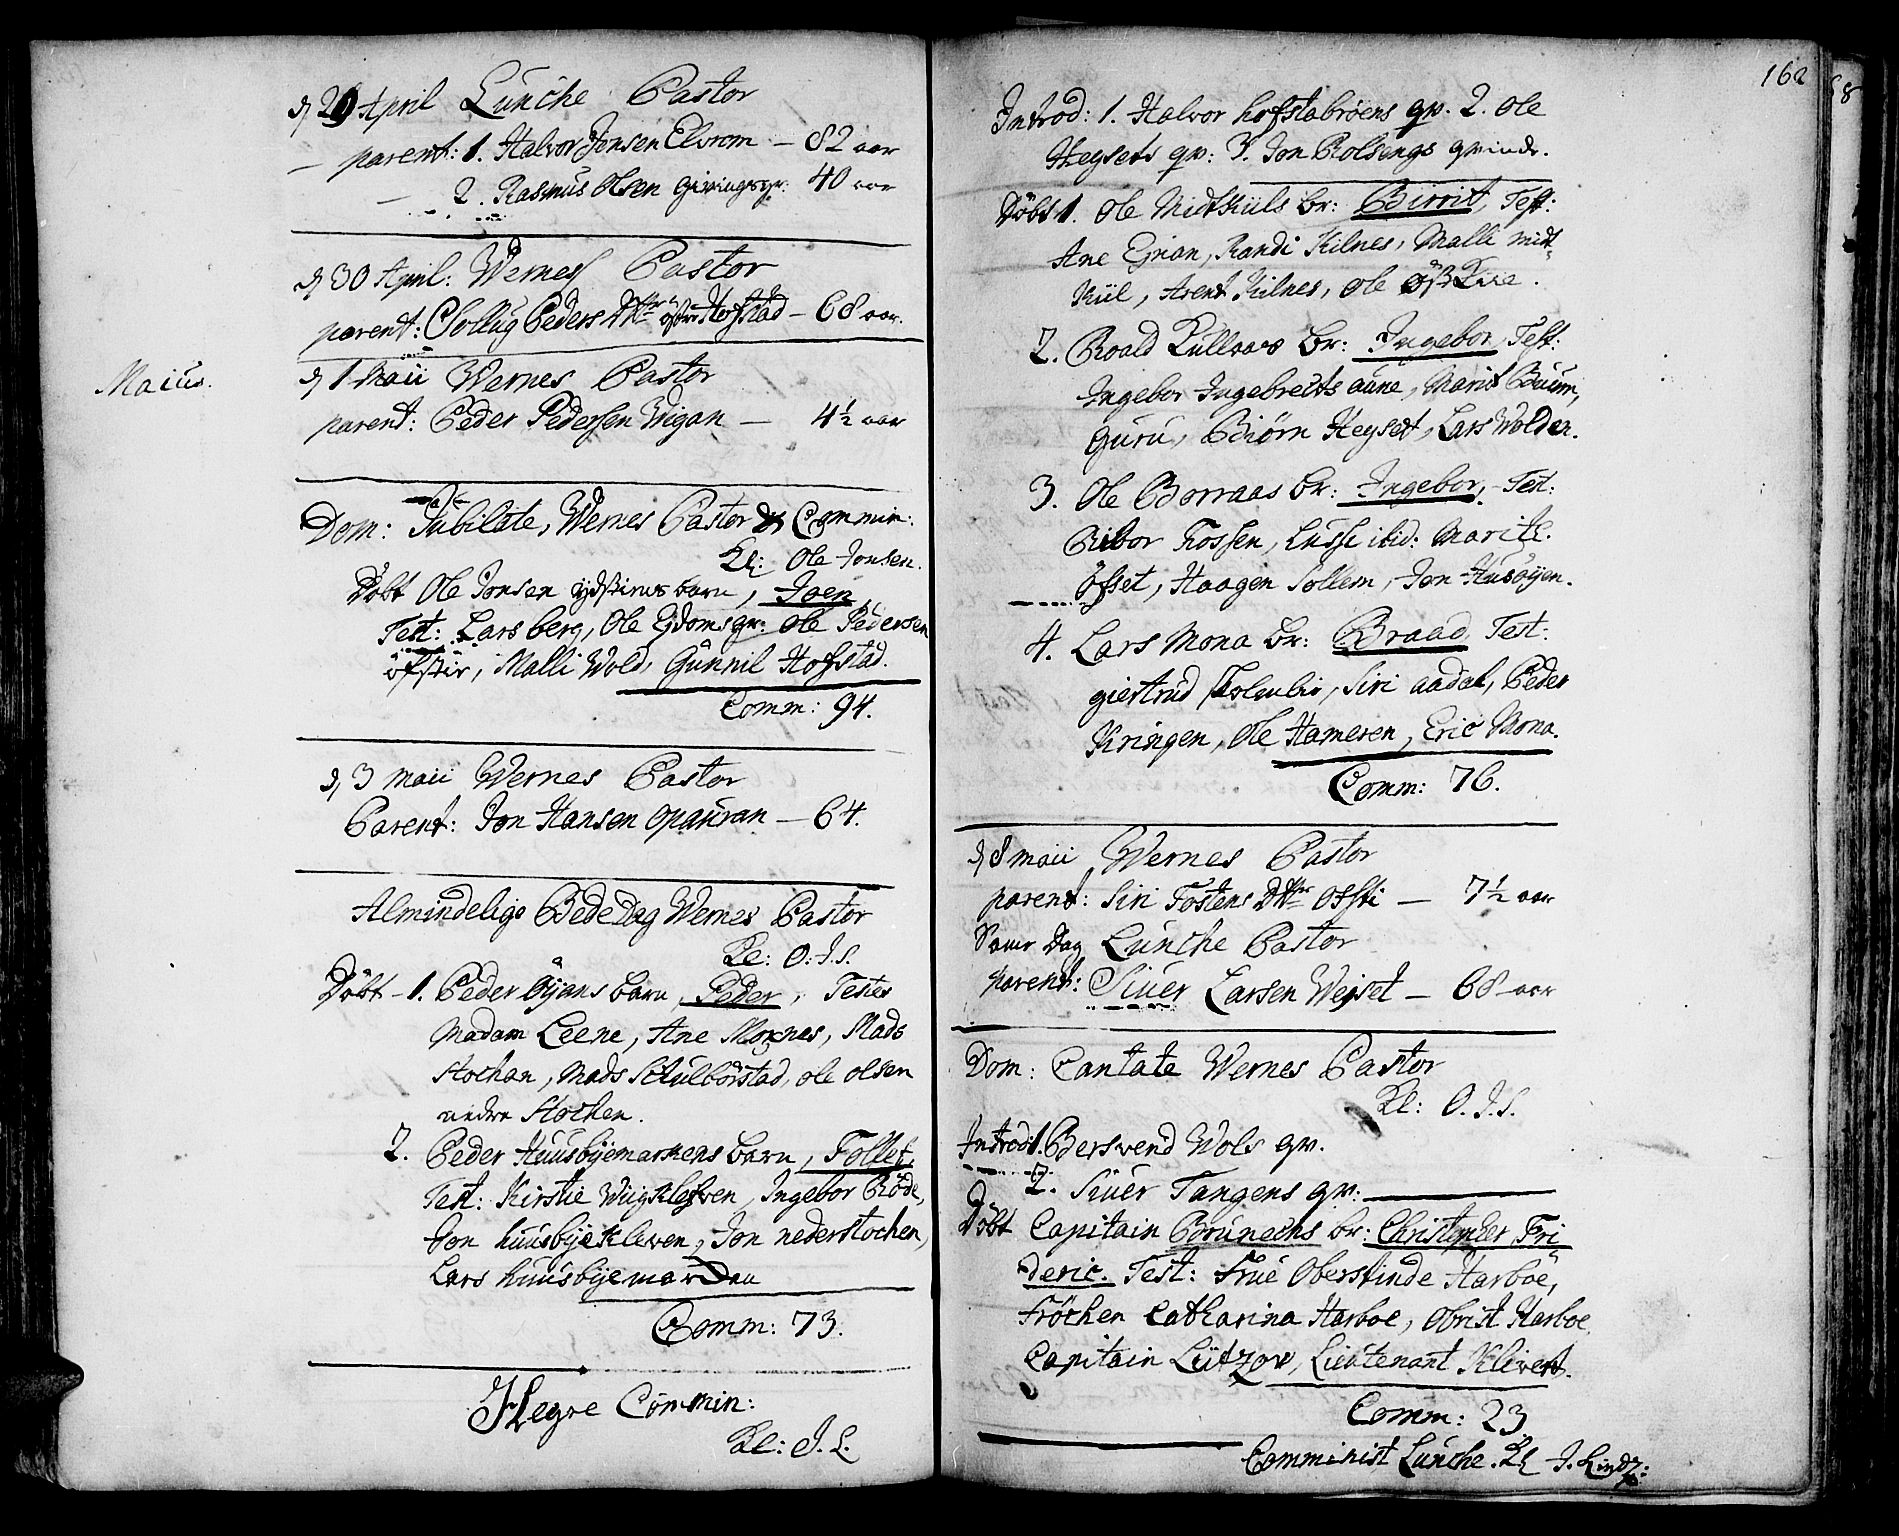 d 29 April Lunche Pastor
parent: 1. Halvor Jensen Elvrom – 82 aar
2. Rasmus Olsen Givingsgr: 40 aar
d 30 April: Wernes Pastor
parent: Sollug Peders Dttr öfre Hofstad – 68 aar.
Maius.
d 1 Maii Wernes Pastor
parent: Peder Pedersen Wigan – 4½ aar
Dom: Jubilate, Wernes Pastor & Commin:
Kl: Ole Jonsen.
Döbt Ole Jonsen ydstines barn, Joen,
Test: Lars berg, Ole Eydomsgr: Ole Pedersen
öfstie, Malli Wold, Gunnil Hofstad.
Comm: 94.
d 3 maii Wernes Pastor
Parent: Jon Hansen Opauran – 64.
Almindelige Bede Dag Wernes Pastor
Kl: O. J. S.
Döbt – 1. Peder Öyans barn, Peder, Testes
Madam Leene, Ane Moxnes, Mads
Stochan, Mads Schulbörstad, Ole Olsen
nedre Stochen.
2. Peder Huusbyemarkens barn, Follet,
Test: Kirstie Wiigklefven, Ingebor Röde,
Jon huusbyekleven, Jon nederstochen,
Lars huusbyemarken
Comm: 73.
Hegre Commin:
Kl: J. L.
162
Introd: 1. Halvor hofstabröens qv. 2. Ole
Heysets qv: 3. Jon Rolsengs qvinde.
Döbt 1. Ole Midtkiils br: Birrit, Test:
Ane Grian, Randi Kilnes, Malli midt
kiil, Arent Kilnes, Ole
2. Roald Kullraas br: Ingebor, Test:
Ingebor Ingebrectsaune, Marit Buum,
Guru, Biörn Heyset, Lars Wolden.
3. Ole Borraas br: Ingebor, Test:
Ribor Fossen, Lussi ibid: Marite
öfset, Haagen Sollem, Jon Husöyen.
4. Lars Mona br: Braad, Test:
giertrud, Siri aadal, Peder
Kringen, Ole Hameren, Eric Mona.
Comm: 76.
d 8 maii Wernes Pastor
parent: Siri Tostens Dttr Ofsti – 7½ aar
Same Dag Lunche Pastor
parent: Siuer Larsen Weyset – 68 aar
Dom: Cantate Wernes Pastor
Kl: O. J. S.
Introd: 1. Berswend Wols qv.
2. Siuer Tangens qv:
Döbt Capitain Brunechs br: Christopher Fri
deric. Test: Frue Oberstinde Harboe,
Fröchen Catharina Harboe, Obrist Harboe
Capitain Lützow, Lieutenant Klivert.
Comm: 23
Comminist Lunche. Kl J. Lindz: